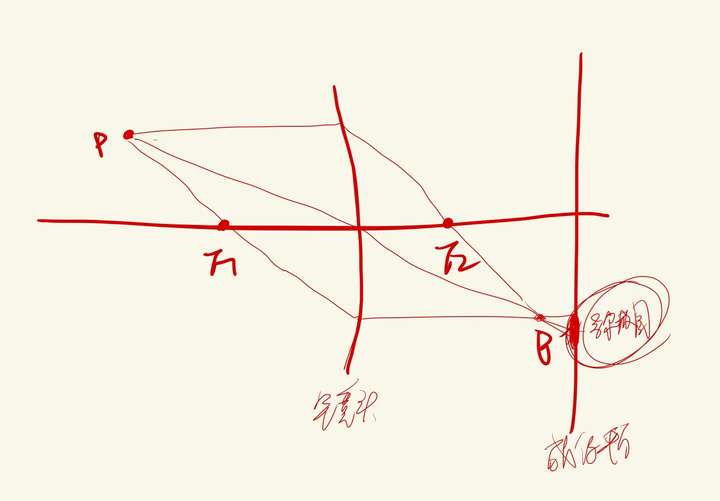 P
F1
F2
B
弥散圆
镜头
成像平面